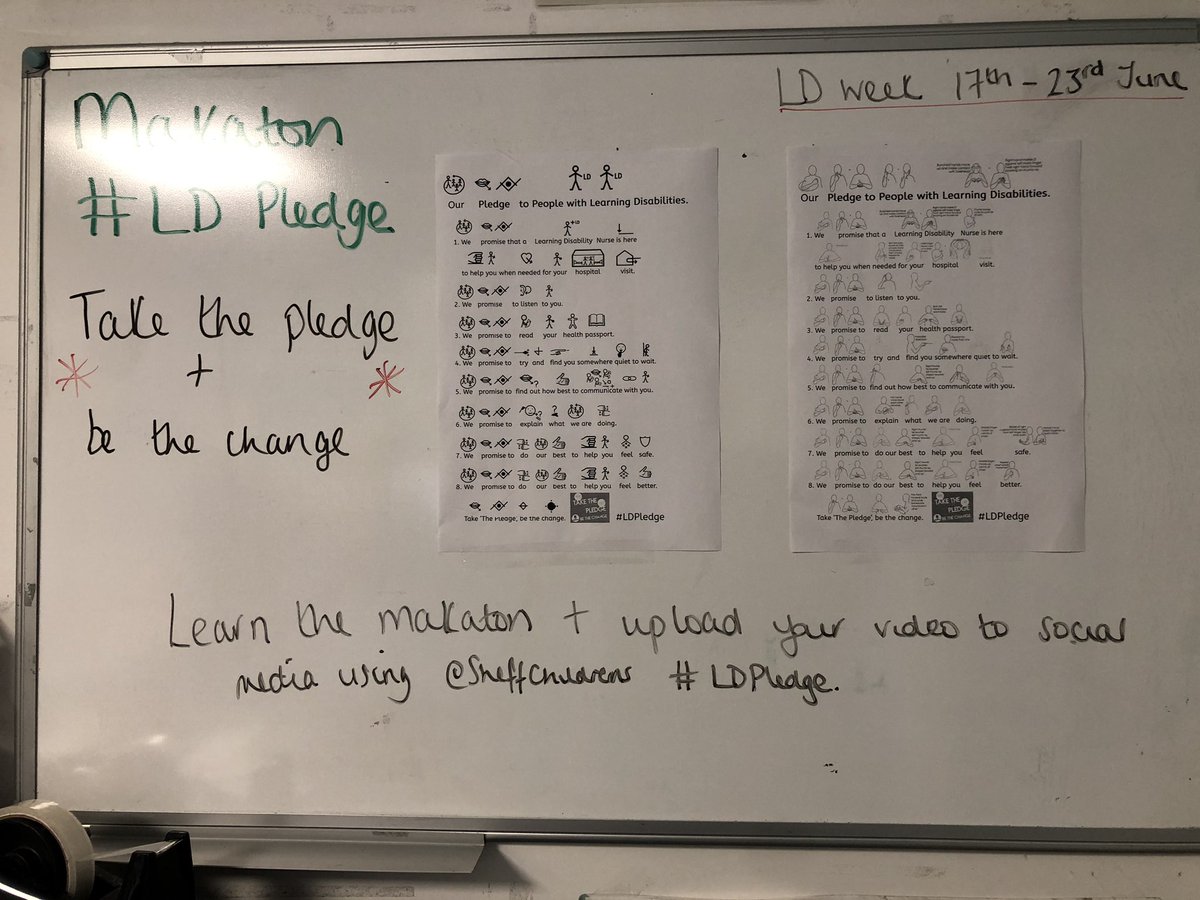 LD Week 17th - 23rd June
Makaton
#LD Pledge
Take the pledge
+
be the change
LD LD
Our Pledge to People with Learning Disabilities.
+LD
1. We promise that a Learning Disability Nurse is here
to help you when needed for your hospital visit.
2. We promise to listen to you.
3. We promise to read your health passport.
4. We promise to try and find you somewhere quiet to wait.
5. We promise to find out how best to communicate with you.
6. We promise to explain what we are doing.
7. We promise to do our best to help you feel safe.
8. We promise to do our best to help you feel better.
TAKE THE
PLEDGE
BE THE CHANGE
Take 'The Pledge', be the change. #LDPledge
Our Pledge to People with Learning Disabilities.
1. We promise that a Learning Disability Nurse is here
to help you when needed for your hospital visit.
2. We promise to listen to you.
3. We promise to read your health passport.
4. We promise to try and find you somewhere quiet to wait.
5. We promise to find out how best to communicate with you.
6. We promise to explain what we are doing.
7. We promise to do our best to help you feel safe.
8. We promise to do our best to help you feel better.
TAKE THE
PLEDGE
BE THE CHANGE
Take 'The Pledge', be the change. #LDPledge
Learn the makaton + upload your video to social
media using @SheffChildrens #LDPledge.